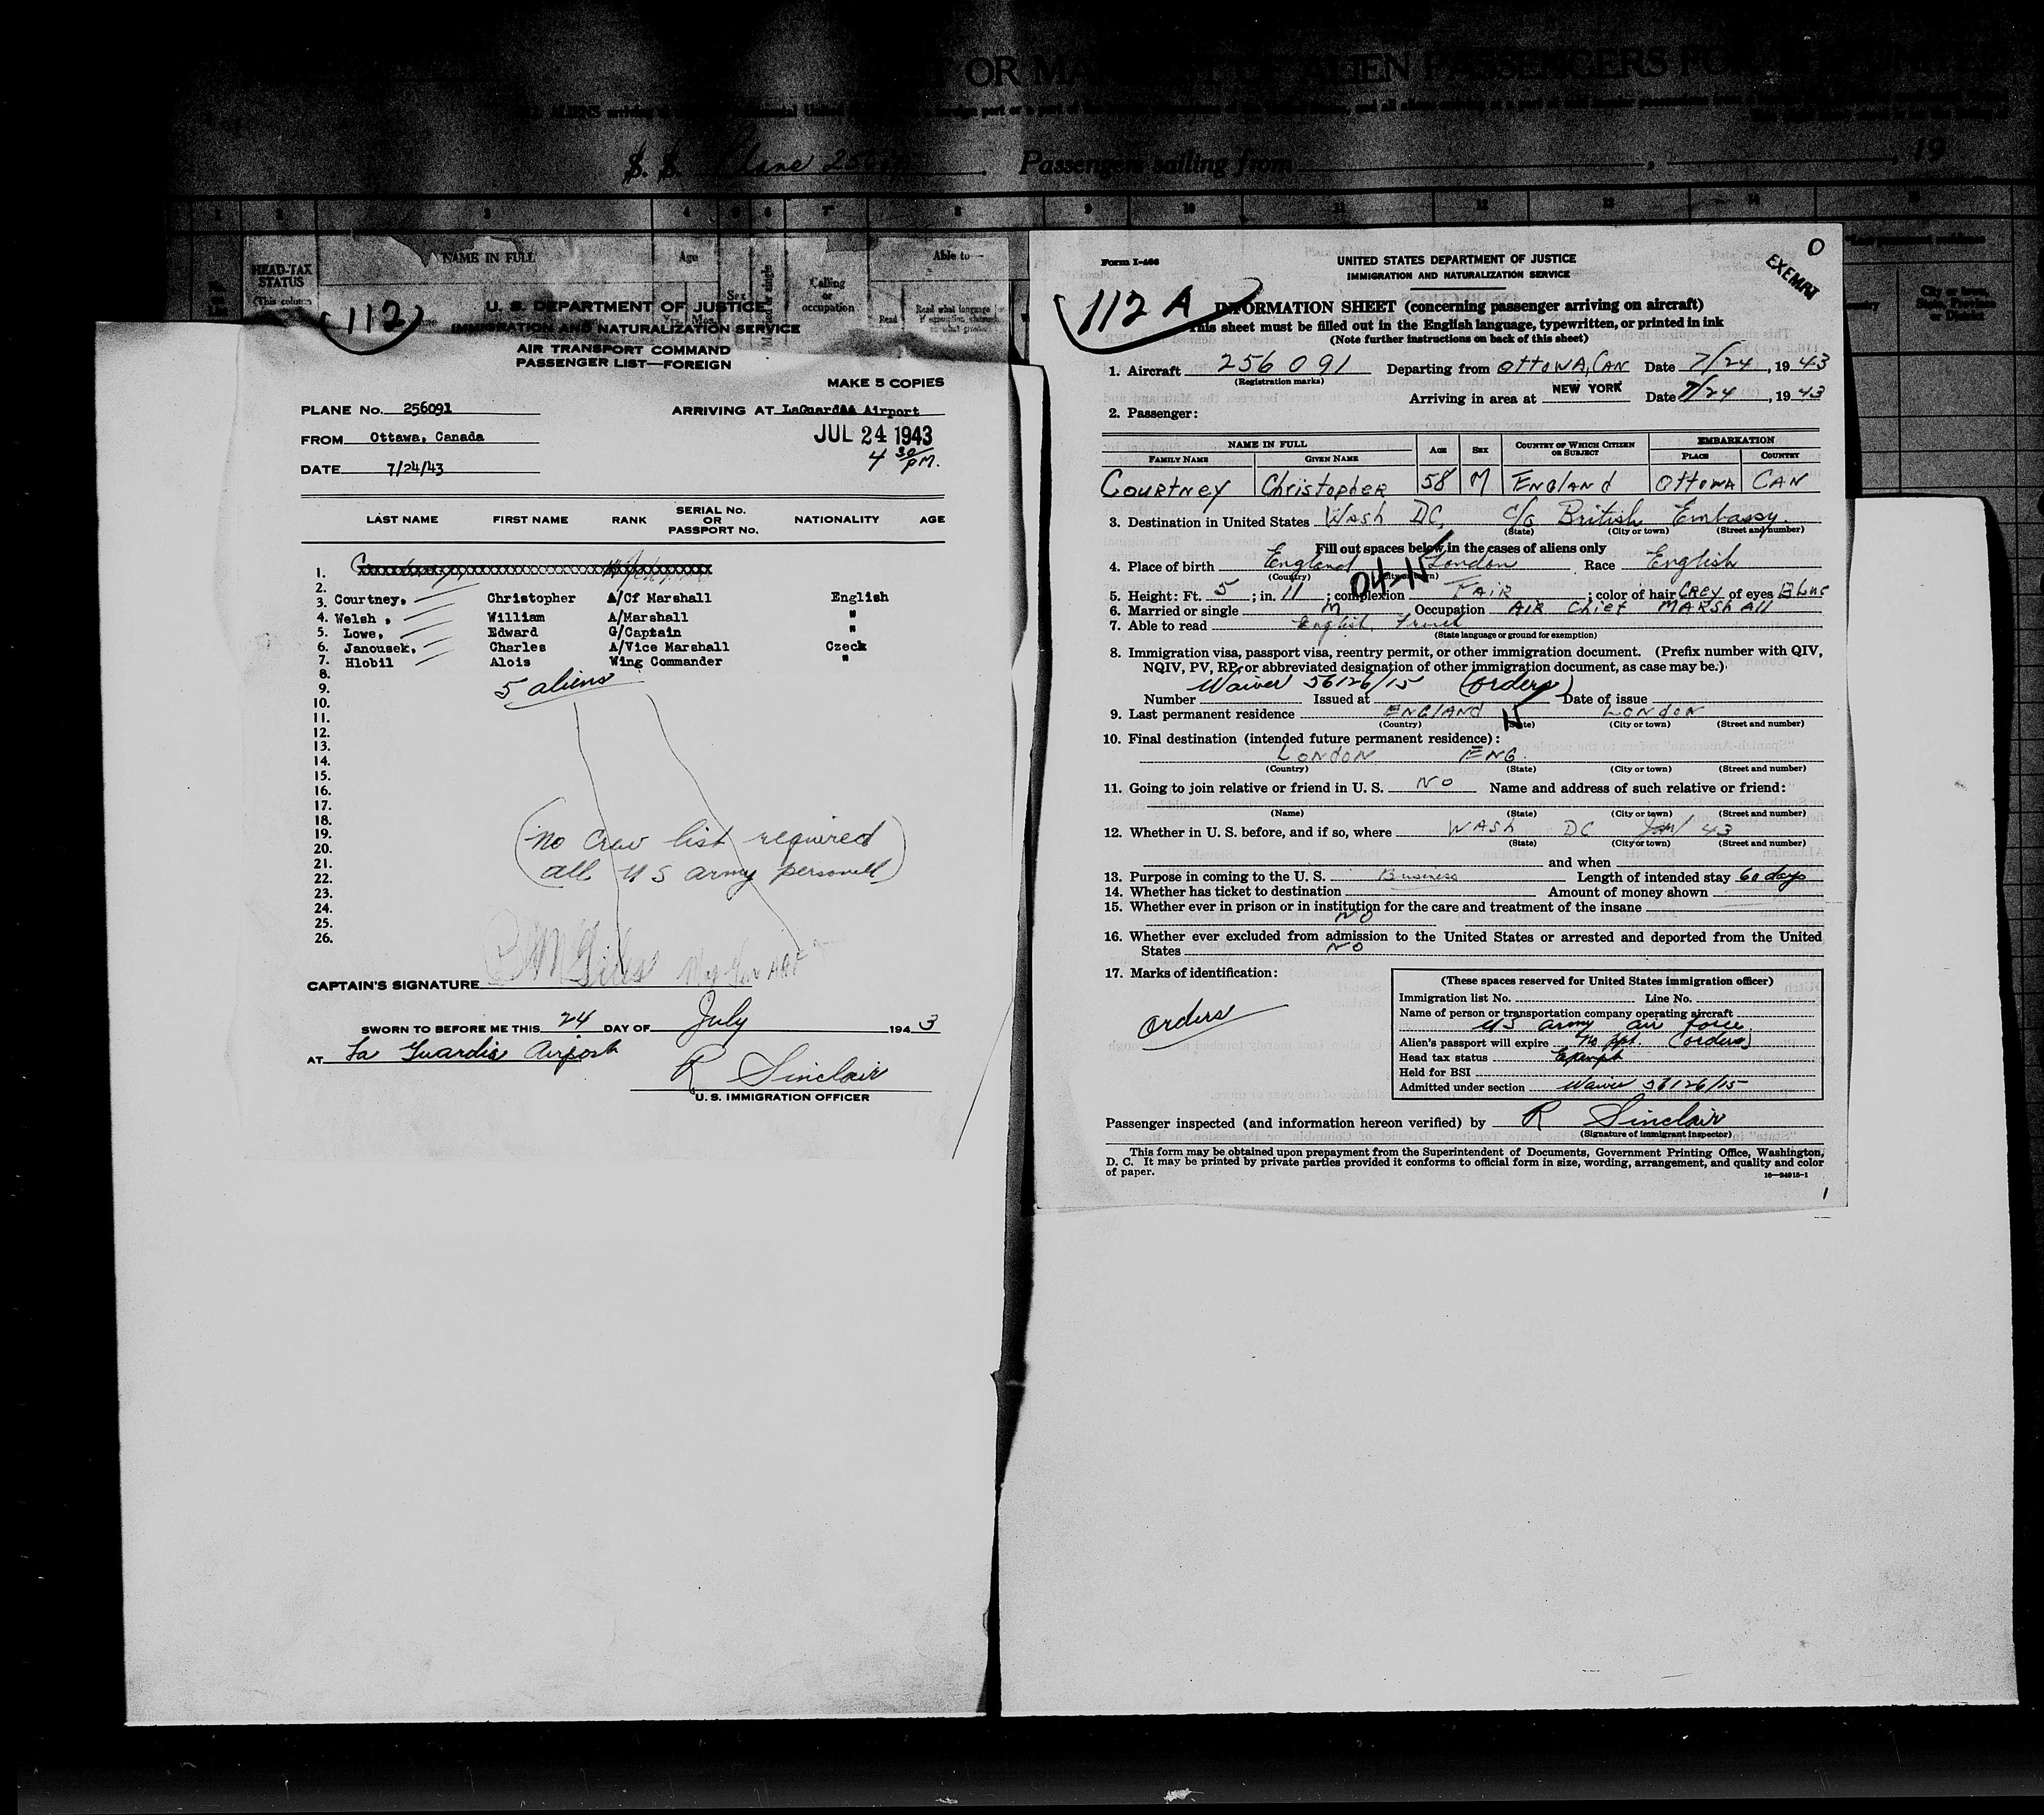 OR MA OF ALIEN PASSENGERS FO
S. S. Plane 2560 Passengers sailing from , , 19
1 2 3 4 5 6 7 8 9 10 11 12 13 14 15
HEAD-TAX STATUS
(This column
NAME IN FULL
Age
Yrs. Mos.
Sex
Married or single
Calling or occupation
Able to—
Read
Read what language
112
U. S. DEPARTMENT OF JUSTICE
IMMIGRATION AND NATURALIZATION SERVICE
AIR TRANSPORT COMMAND
PASSENGER LIST—FOREIGN
MAKE 5 COPIES
PLANE No. 256091 ARRIVING AT LaGuardia Airport
FROM Ottawa, Canada JUL 24 1943
DATE 7/24/43 4 30 PM.
LAST NAME FIRST NAME RANK SERIAL No. OR PASSPORT No. NATIONALITY AGE
1.
2.
3. Courtney, Christopher A/Cf Marshall English
4. Welsh , William A/Marshall "
5. Lowe, Edward G/Captain "
6. Janousek, Charles A/Vice Marshall Czeck
7. Hlobil Alois Wing Commander "
8.
9. 5 aliens
10.
11.
12.
13.
14.
15.
16.
17.
18.
19. (no crew list required
20.
21. all U S army personell)
22.
23.
24.
25.
26.
CAPTAIN'S SIGNATURE
SWORN TO BEFORE ME THIS 24 DAY OF July 1943
AT La Guardia Airport
R Sinclair
U. S. IMMIGRATION OFFICER
0
EXEMPT
Form I-466
UNITED STATES DEPARTMENT OF JUSTICE
IMMIGRATION AND NATURALIZATION SERVICE
112 A
INFORMATION SHEET (concerning passenger arriving on aircraft)
This sheet must be filled out in the English language, typewritten, or printed in ink
(Note further instructions on back of this sheet)
1. Aircraft 256 091 Departing from Ottowa, Can Date 7/24, 1943
(Registration marks)
Arriving in area at NEW YORK Date 7/24, 1943
2. Passenger:
NAME IN FULL AGE SEX COUNTRY OF WHICH CITIZEN OR SUBJECT EMBARKATION
FAMILY NAME GIVEN NAME PLACE COUNTRY
Courtney Christopher 58 M England Ottowa Can
3. Destination in United States Wash DC, c/o British Embassy.
(State) (City or town) (Street and number)
Fill out spaces below in the cases of aliens only
4. Place of birth England London Race English
(Country) (City or town)
04-11
5. Height: Ft. 5; in. 11; complexion Fair; color of hair Grey of eyes Blue
6. Married or single m Occupation Air Chief Marshall
7. Able to read English, French
(State language or ground for exemption)
8. Immigration visa, passport visa, reentry permit, or other immigration document. (Prefix number with QIV,
NQIV, PV, RP, or abbreviated designation of other immigration document, as case may be.)
Waiver 56126/15 (orders)
Number Issued at Date of issue
9. Last permanent residence England London
(Country) (State) (City or town) (Street and number)
10. Final destination (intended future permanent residence):
London Eng.
(Country) (State) (City or town) (Street and number)
11. Going to join relative or friend in U. S. No Name and address of such relative or friend:
(Name) (State) (City or town) (Street and number)
12. Whether in U. S. before, and if so, where Wash DC Jan/ 43
(State) (City or town) (Street and number)
and when
13. Purpose in coming to the U. S. Business Length of intended stay 60 days
14. Whether has ticket to destination Amount of money shown
15. Whether ever in prison or in institution for the care and treatment of the insane
No
16. Whether ever excluded from admission to the United States or arrested and deported from the United
States No
17. Marks of identification:
orders
(These spaces reserved for United States immigration officer)
Immigration list No. Line No.
Name of person or transportation company operating aircraft
US army air force
Alien's passport will expire no ppt. (orders)
Head tax status Exempt
Held for BSI
Admitted under section Waiver 56126/15
Passenger inspected (and information hereon verified) by R Sinclair
(Signature of immigrant inspector)
This form may be obtained upon prepayment from the Superintendent of Documents, Government Printing Office, Washington,
D. C. It may be printed by private parties provided it conforms to official form in size, wording, arrangement, and quality and color
of paper. 16—24915-1
1